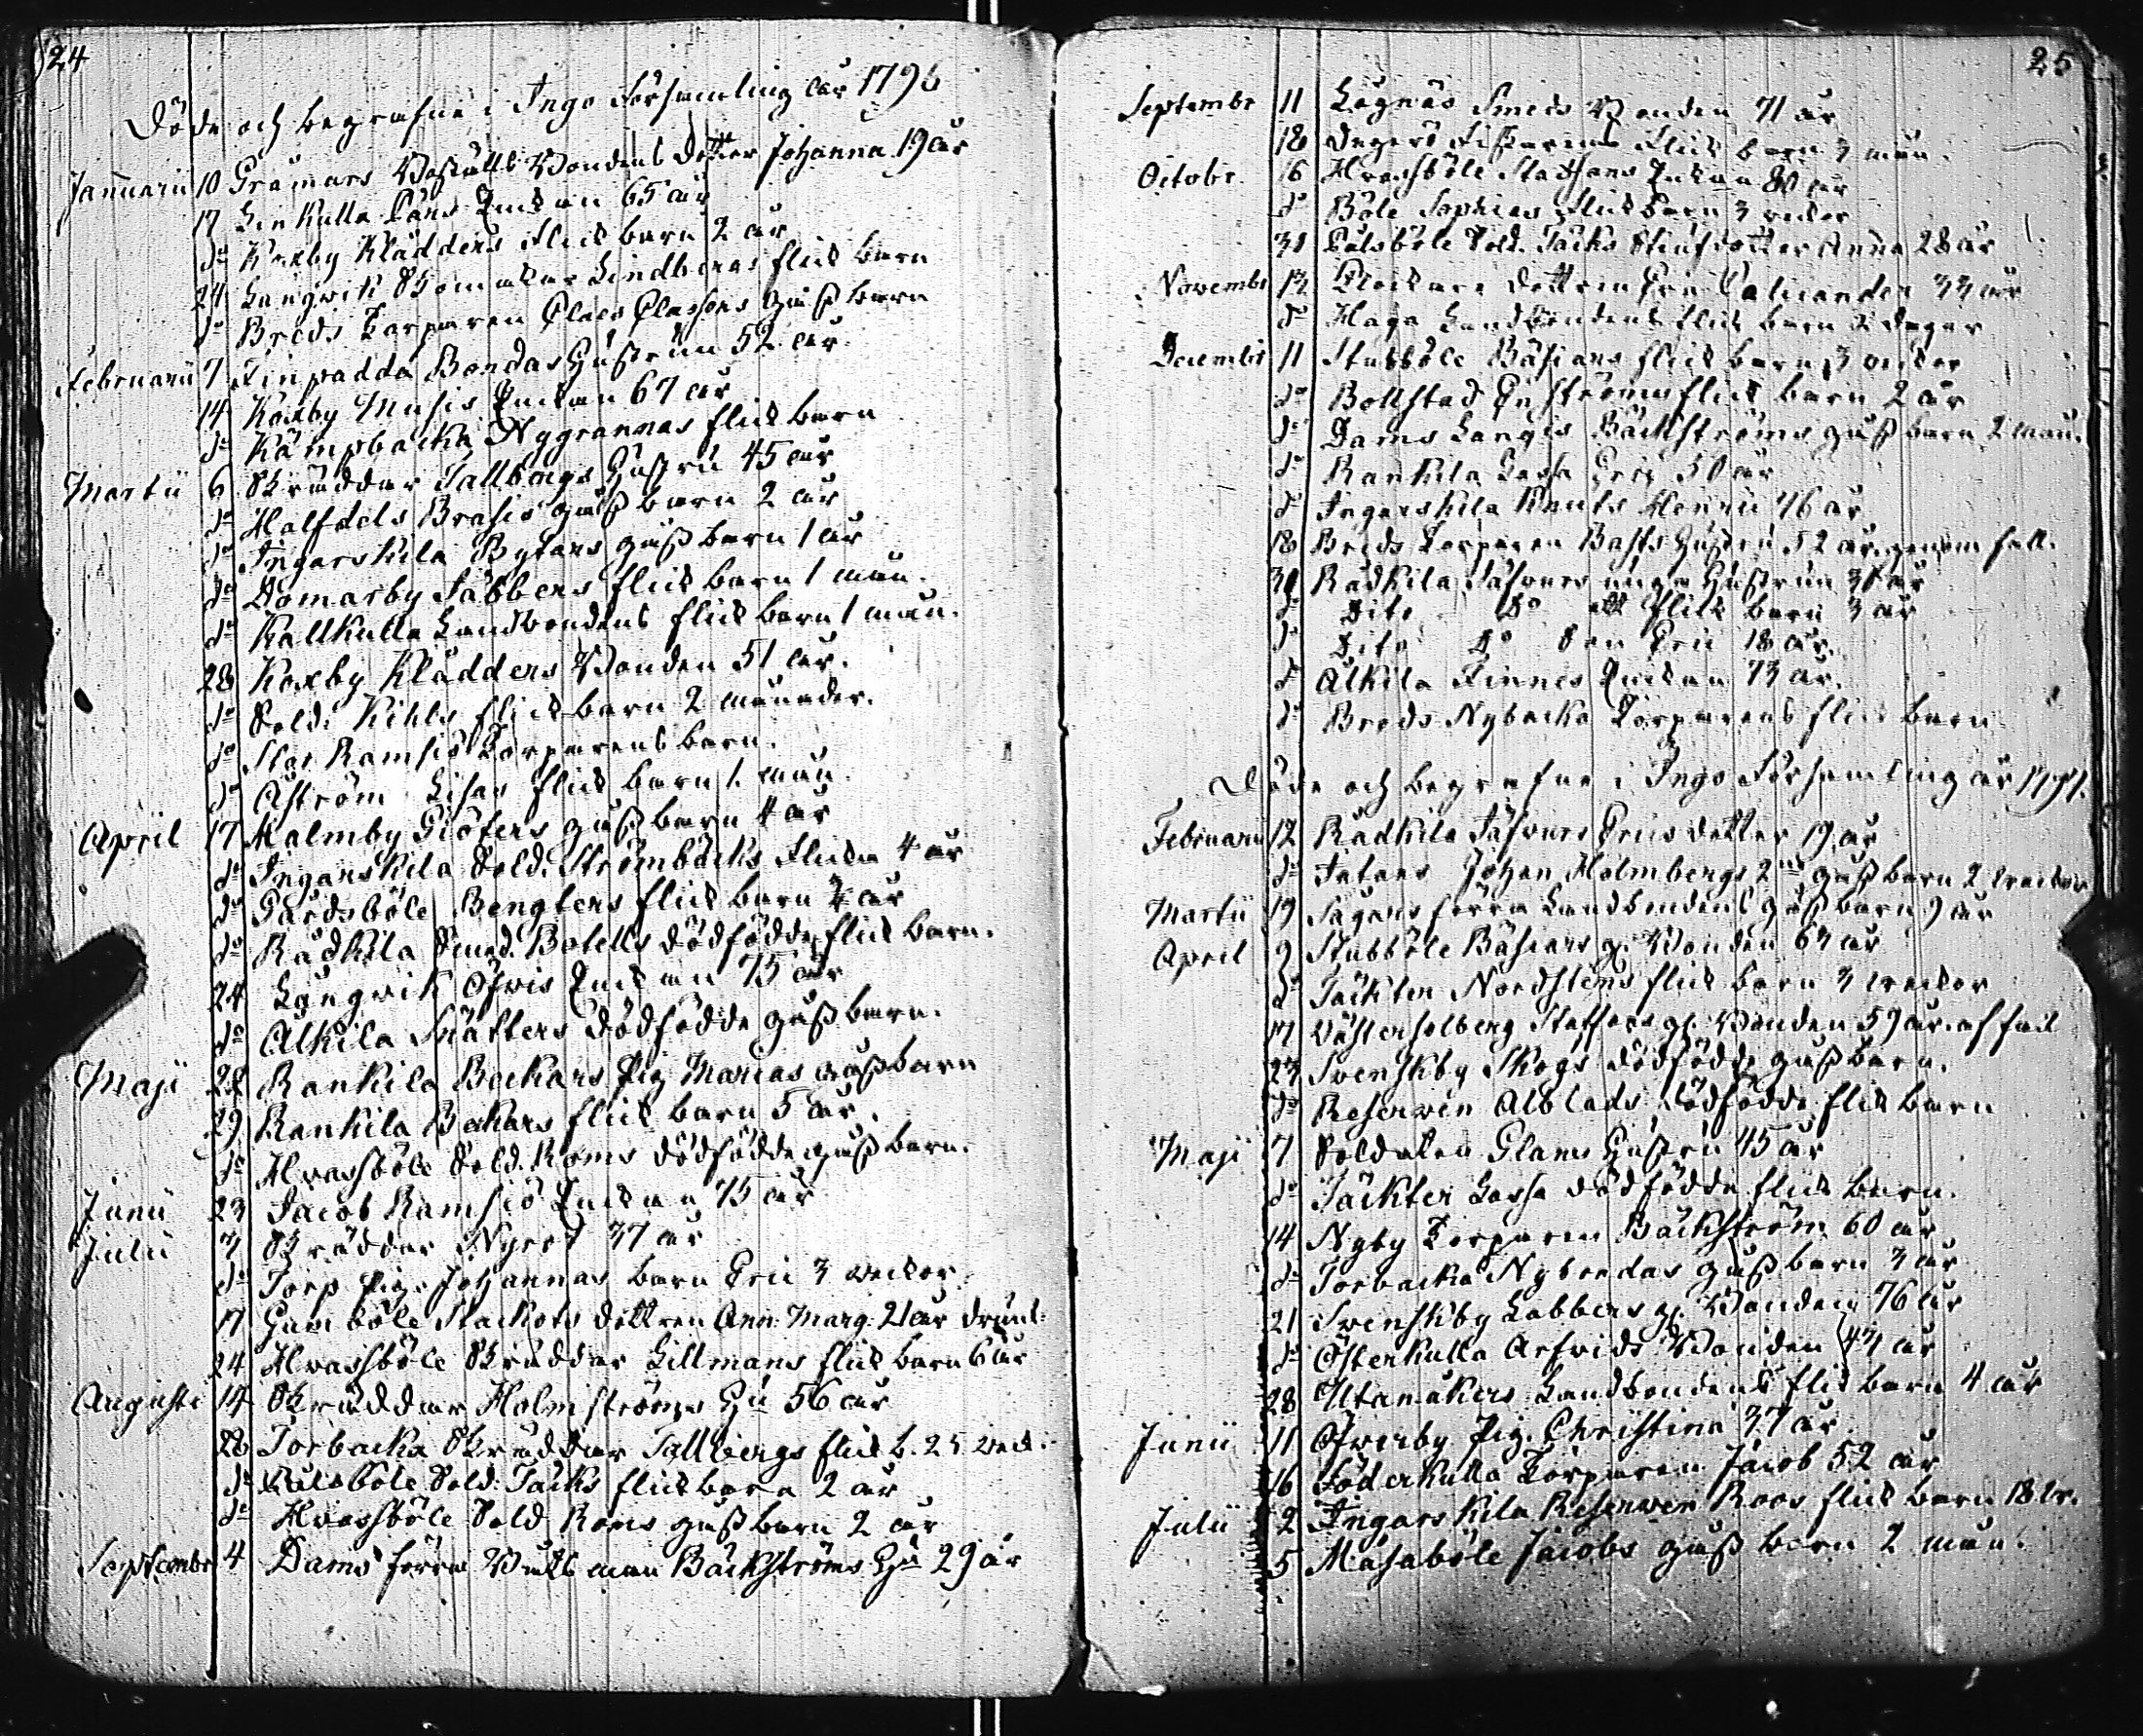 24
Döde och begrafne i Ingo Församling år 1796
Januarii 10 Gråmars Boställs Bondens Dotter Johanna 19 år
17 Linkulla Lars Enkan 65 år
do Koxby Klädders flick barn 2 år
24 Långwik Skomakar Lindbergs flick barn
do Breds Torparen Claes Classons goss barn
Februarii 7 Finpadda Bondas Hustrun 52 år
14 Koxby Musis Enkan 67 år
do Kämpbacka Nygrannas flick barn
Martii 6 Skräddar Tallbergs Hustru 45 år
do Halfdels Brasis goss barn 2 år
do Ingarskila Bytars goss barn 1 år
do Domarby Jäbbens flick barn 1 mån.
do Kallkulla Landbondens flick barn 1 mån.
28 Koxby Klädders Bonden 51 år.
do Sold. Kihls flick barn 2 månader.
do Stor Ramsiö Torparens barn.
do Åström Lisas flick barn 1. mån.
April 17 Malmby Giöfers goss barn 4 år
do Ingarskila Sold. Strömbäcks flicka 4 år
do Gårdsböle Bengters flick barn 4 år
do Rådkila Botells dödfödde flick barn.
24 Långwik Ofwis Enkan 75 år
do Ålkila Skätters dödfödde goss barn.
Maji 22 Rankila Backars Pig Marias goss barn
29 Rankila Backars flick barn 5 år.
do Hwassböle Sold. Roms dödfödde goss barn.
Junii 23 Jacob Ramsiö Enkan 75 år
Julii 3 Skräddar Nyrot 37 år
do Torp Pig. Johannas barn Eric 3 weckor
17 Gumböle Stackots dottren Ann Marg. 21 år drunk.
24 Hwassböle Skräddar Lillmans flick barn 6 år
Augusti 14 Skräddar Holmströms Hu 56 år
28 Torbacka Skräddar Tallbergs flick b. 25 weck.
do Pålsböle Sold. Täcks flick barn 2 år
do Hwassböle Sold Roms goss barn 2 år
September 4 Dams förra Bäckströms Hu 29 år
25
Septembr 11 Lågnäs Smeds Bonden 71 år
18 Degerö Fiskarens Flick barn 3 mån.
Octobr. 16 Hwassböle Staffans Enkan 80 år
do Böle Sophias flick barn 3 weckor
31 Pålsböle Sold. Täcks Stiufdotter Anna 28 år
Novembr 13 Klockare dottren Fru Calicander 33 år
do Haga Landbondens flick barn 2 dagar
Decembr 11 Stubböle Bäsians flick barn 3 weckor
do Bollstad Enströms flick barn 2 år
do Dams Langis Bäckströms goss barn 2 mån.
do Rankila Lassa Eric 50 år
do Ingarskila Knuts Henric 76 år
18 Breds Torparen Basts Hustru 52 år genom fall.
30 Rådkila Jäsours unga Hustrun 38 år
do Dito do ett flick barn 3 år
do Dito do Son Eric 18 år.
do Ålkila Finnes Enkan 73 år.
do Breds Nybacka Torparens flick barn
Döde och begrafne i Ingo Församling år 1797.
Februarii 12 Rådkila Jäsours Erics dotter 19 år
do Tatars Johan Holmbergs 2ne goss barn 2 weckor
Martii 19 Sågars förra Landbondens goss barn 9 år
April 9 Stubböle Bäsians g. Bonden 63 år
do Täckter Nordstens flick barn 3 weckor
17 Wästersolberg Staffars gl. Bonden 59 år. af fall
23 Svenskby Skogs dödfödde goss barn.
do Reserwen Alblads dödfödde flick barn
Maji 7 Soldaten Glans Hustru 45 år
do Täckter Lassa dödfödde flick barn.
14 Nyby Torparen Bäckström 60 år
do Torbacka Nybondas goss barn 3 år
21 Svenskby Labbers gl. Bonden 76 år
do Österkulla Arfvids Bonden 43 år
28 Utanåkers Landbondens flick barn 4 år
Junii 11 Ofwerby Pig. Christina 37 år
16 Söderkulla Torparen Jacob 52 år
Julii 2 Ingarskila Reserwen Roos flick barn 18 w.
5 Måsaböle Jacobs goss barn 2 mån.